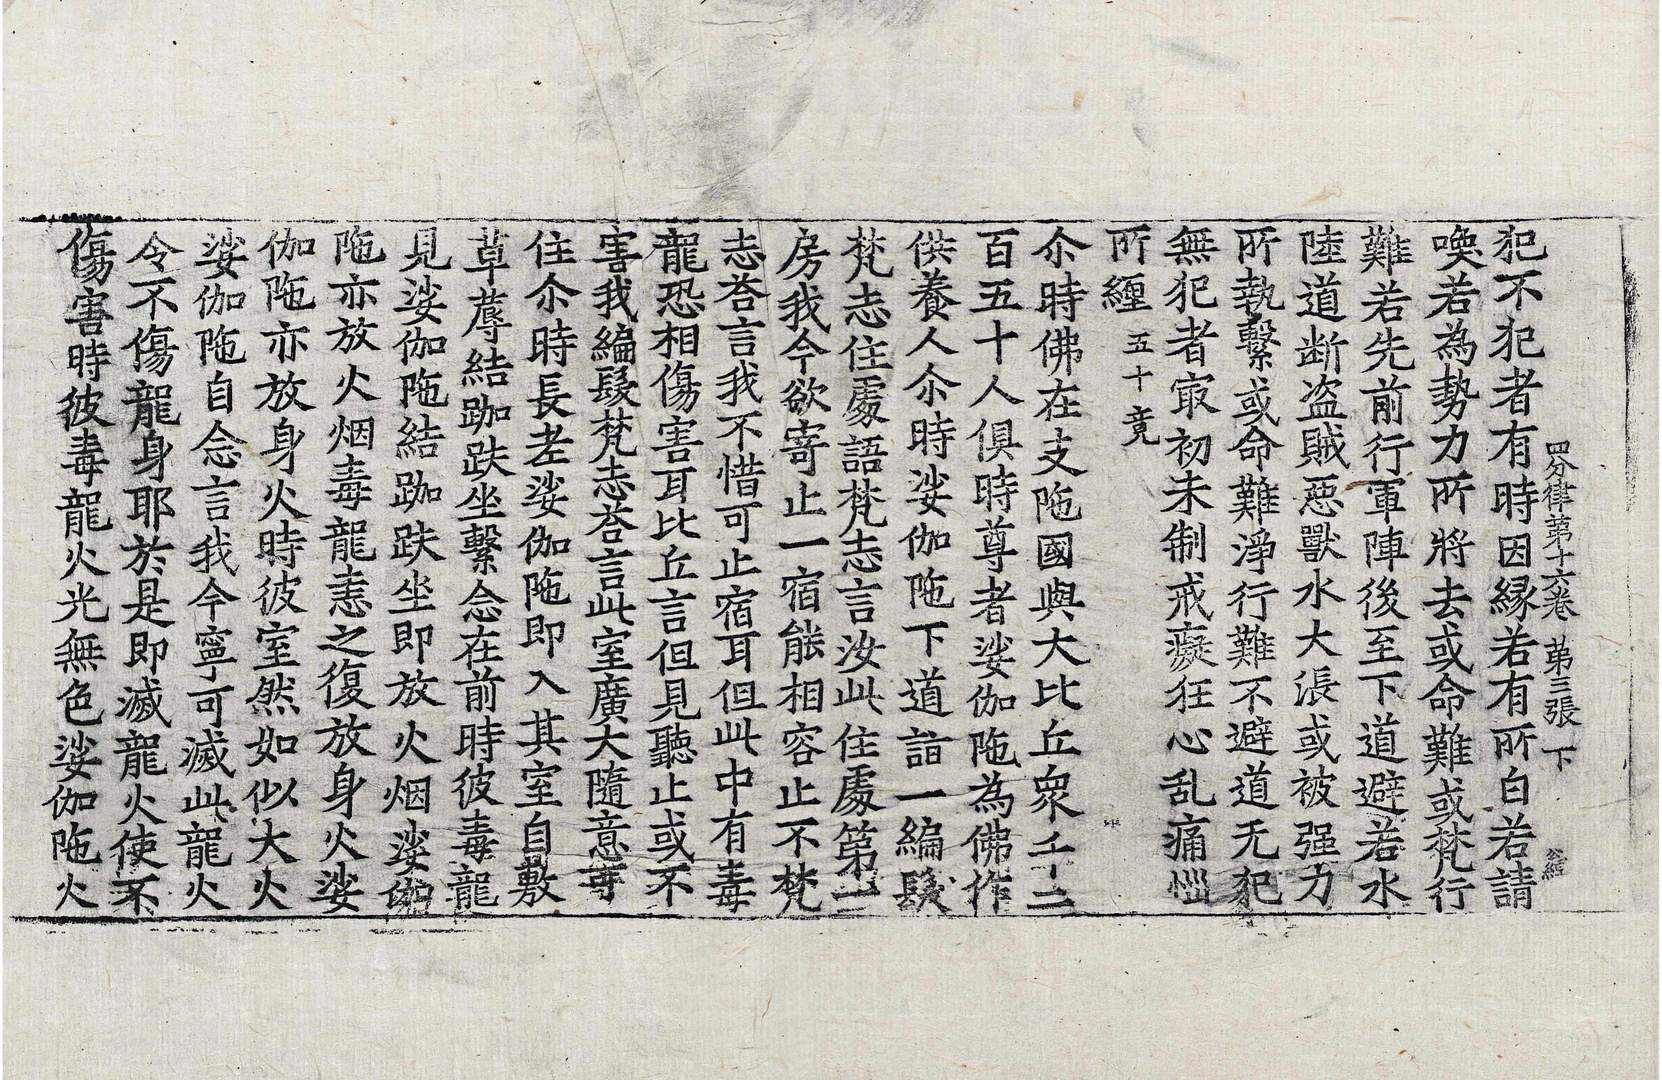 四分律第十六卷 第三張 下
犯不犯者有時因縁若有所白若請
喚若為勢力所將去或命難或梵行
難若先前行軍陣後至下道避若水
陸道断盗賊惡獸水大漲或被强力
所執繫或命難淨行難不避道无犯
無犯者㝡初未制戒癡狂心乱痛惱
所纏 五十竟
尒時佛在支陁國與大比丘衆千二
百五十人俱時尊者娑伽陁為佛作
供養人尒時娑伽陁下道詣一編髮
梵志住處語梵志言汝此住處第一
房我今欲寄止一宿能相容止不梵
志荅言我不惜可止宿耳但此中有毒
龍恐相傷害耳比丘言但見聽止或不
害我編髮梵志荅言此室廣大隨意可
住尒時長老娑伽陁即入其室自敷
草蓐結跏趺坐繫念在前時彼毒龍
見娑伽陁結跏趺坐即放火烟娑伽
陁亦放火烟毒龍恚之復放身火娑
伽陁亦放身火時彼室然如似大火
娑伽陁自念言我今寧可滅此龍火
令不傷龍身耶於是即滅龍火使不
傷害時彼毒龍火光無色娑伽陁火